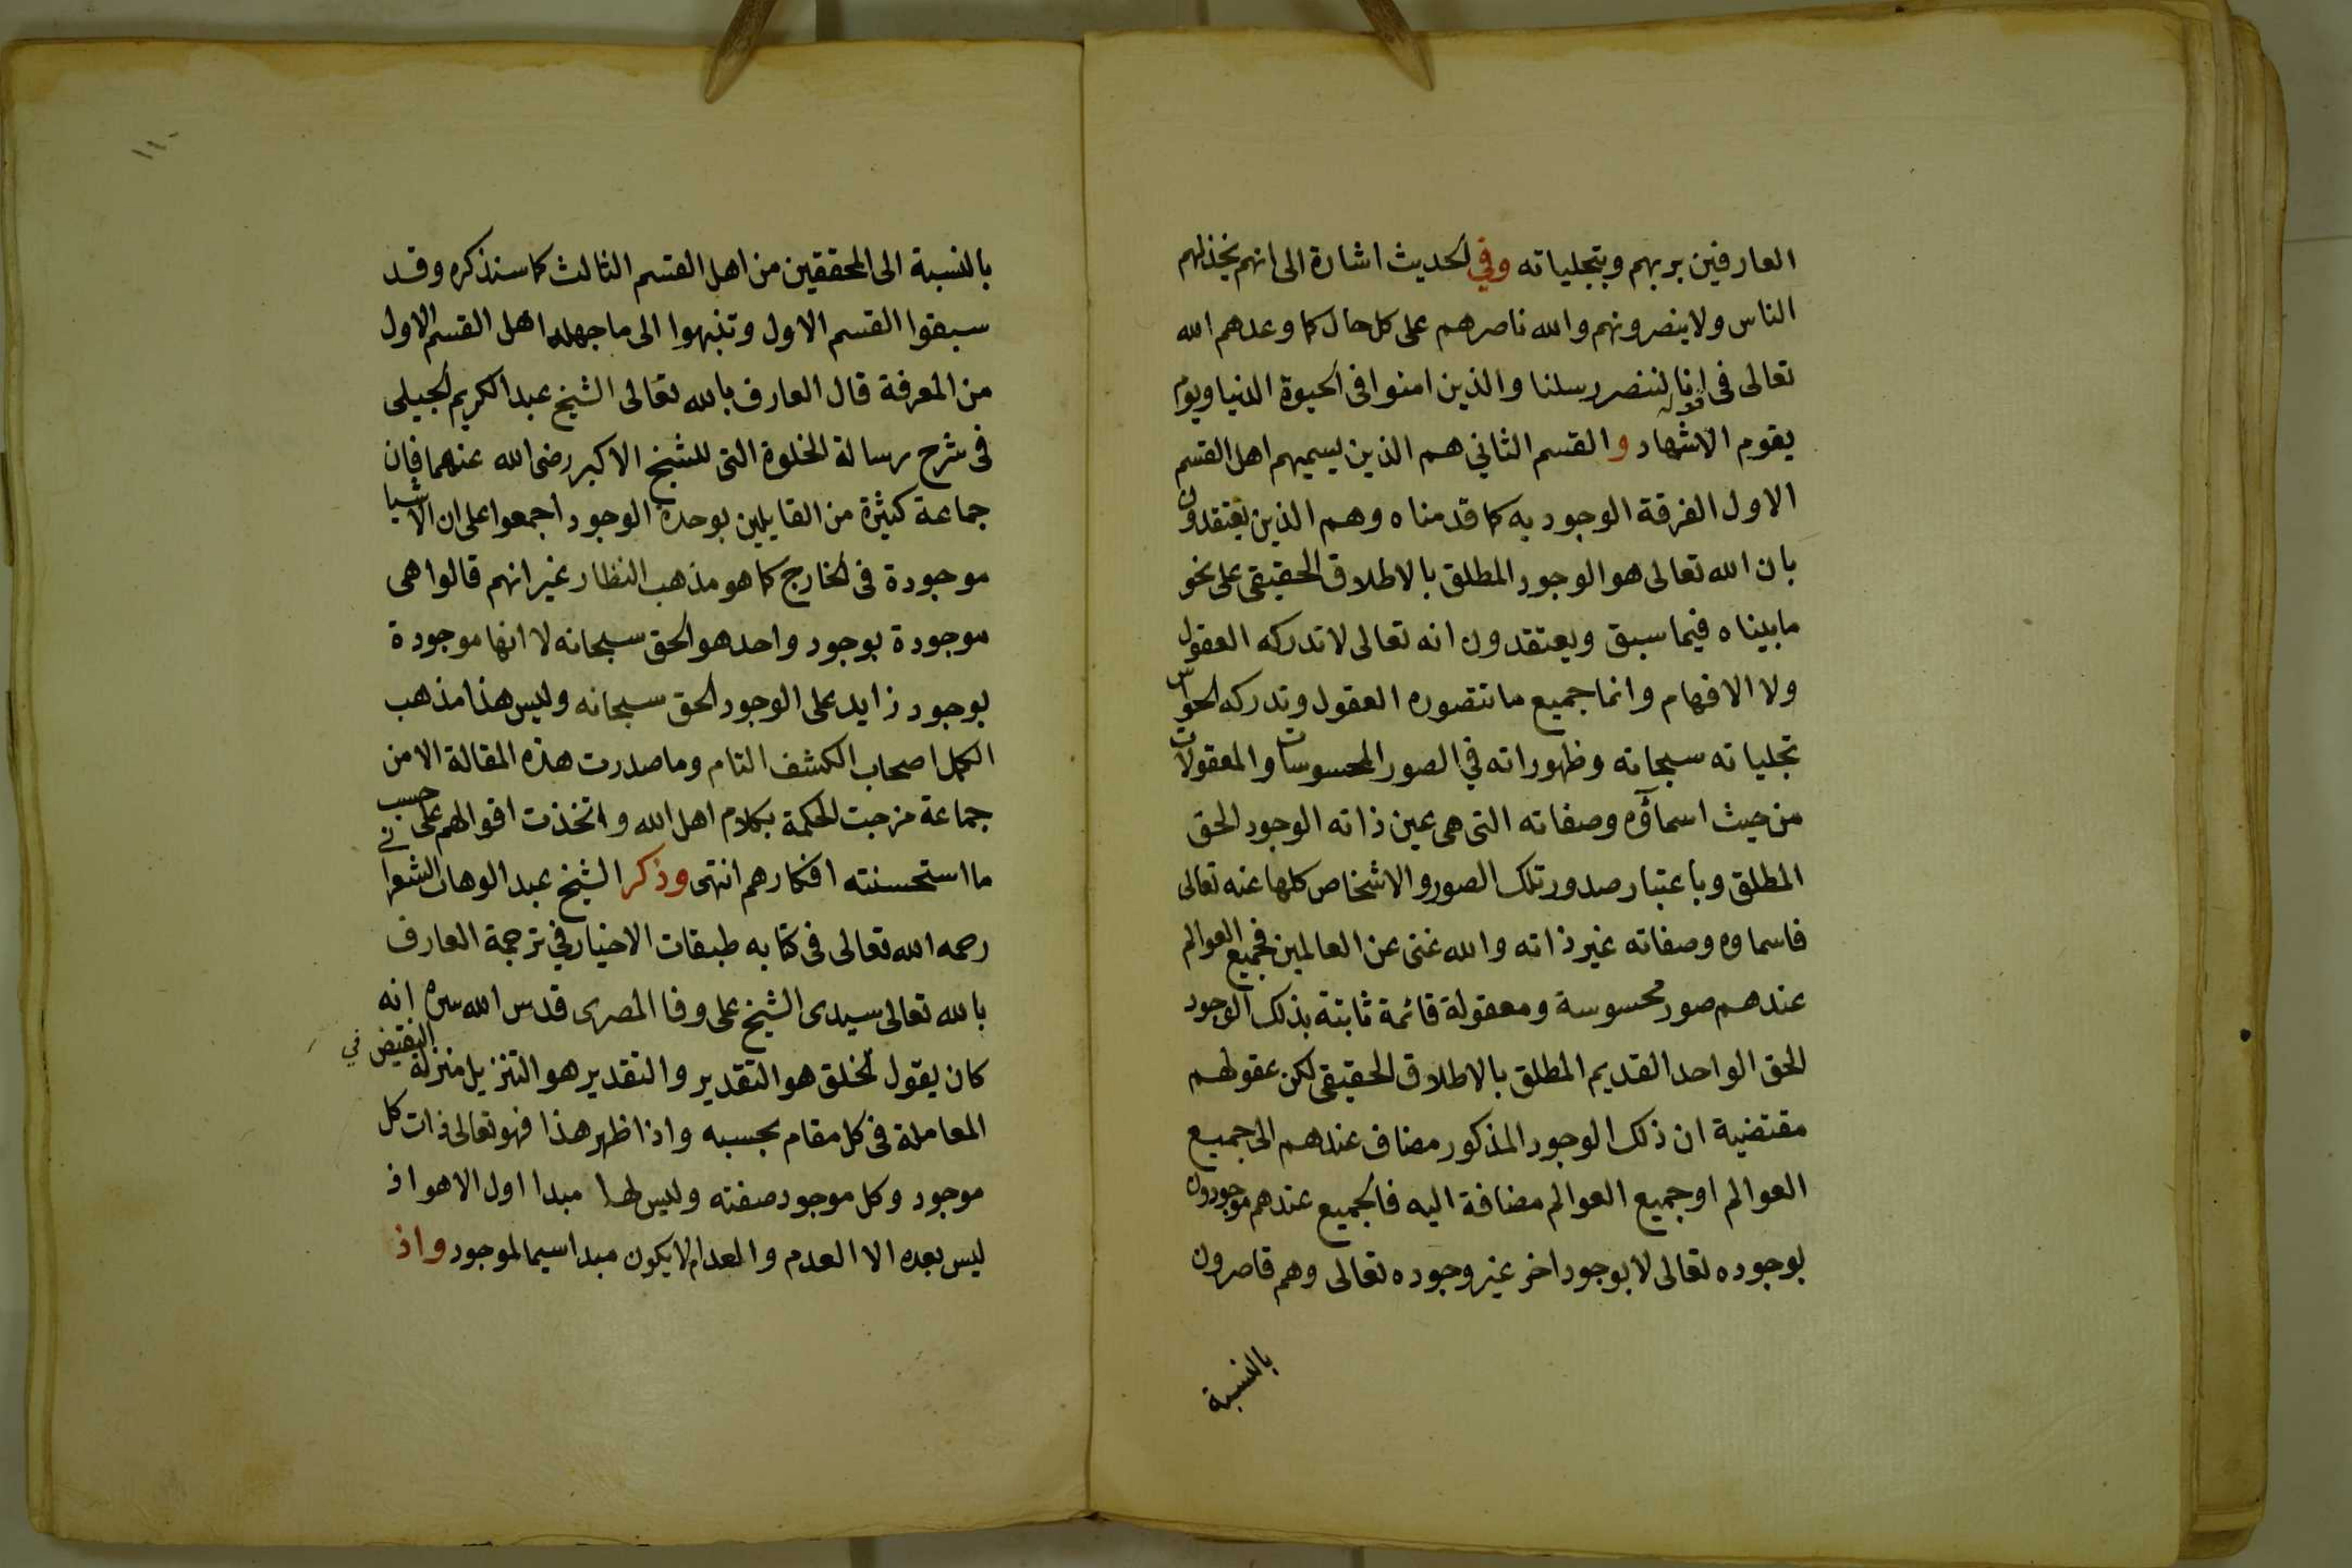 العارفين بربهم وبتجلياته وفي الحديث اشارة الى انهم يخذلهم
الناس ولا ينصرونهم والله ناصرهم على كل حال كما وعدهم الله
تعالى فى قوله انا لننصر رسلنا والذين امنوا فى الحيوة الدنيا ويوم
يقوم الاشهاد والقسم الثاني هم الذين يسميهم اهل القسم
الاول الفرقة الوجوديه كما قدمناه وهم الذين يعتقدون
بان الله تعالى هو الوجود المطلق بالاطلاق الحقيقى على نحو
ما بيناه فيما سبق ويعتقدون انه تعالى لا تدركه العقول
ولا الافهام وانما جميع ما تتصوره العقول وتدركه الحواس
تجلياته سبحانه وظهوراته في الصور المحسوسات والمعقولات
من حيث اسماؤه وصفاته التى هى عين ذاته الوجود الحق
المطلق وباعتبار صدور تلك الصور والاشخاص كلها عنه تعالى
فاسماوه وصفاته غير ذاته والله غنى عن العالمين فجميع العوالم
عندهم صور محسوسة ومعقولة قائمة ثابتة بذلك الوجود
الحق الواحد القديم المطلق بالاطلاق الحقيقى لكن عقولهم
مقتضية ان ذلك الوجود المذكور مضاف عندهم الى جميع
العوالم او جميع العوالم مضافة اليه فالجميع عندهم موجودون
بوجوده تعالى لا بوجود اخر غير وجوده تعالى وهم قاصرون
بالنسبة
١١٠
بالنسبة الى المحققين من اهل القسم الثالث كما سنذكره وقد
سبقوا القسم الاول وتنبهوا الى ما جهله اهل القسم الاول
من المعرفة قال العارف بالله تعالى الشيخ عبد الكريم الجيلى
فى شرح رسالة الخلوة التى للشيخ الاكبر رضى الله عنهما فان
جماعة كثيرة من القايلين بوحدة الوجود اجمعوا على ان الاشيا
موجودة فى الخارج كما هو مذهب النظار غير انهم قالوا هى
موجودة بوجود واحد هو الحق سبحانه لا انها موجودة
بوجود زايد على الوجود الحق سبحانه وليس هذا مذهب
الكمل اصحاب الكشف التام وما صدرت هذه المقالة الا من
جماعة مزجت الحكمة بكلام اهل الله واتخذت اقوالهم على حسب
ما استحسنته افكارهم انتهى وذكر الشيخ عبد الوهاب الشعرانى
رحمه الله تعالى فى كتابه طبقات الاخيار في ترجمة العارف
بالله تعالى سيدى الشيخ على وفا المصرى قدس الله سره انه
كان يقول الخلق هو التقدير والتقدير هو التنزيل منزلة النقيض في
المعاملة فى كل مقام بحسبه واذا ظهر هذا فهو تعالى ذات كل
موجود وكل موجود صفته وليس لها مبدا اول الا هو اذ
ليس بعده الا العدم والعدم لا يكون مبدا سيما لموجود واذ